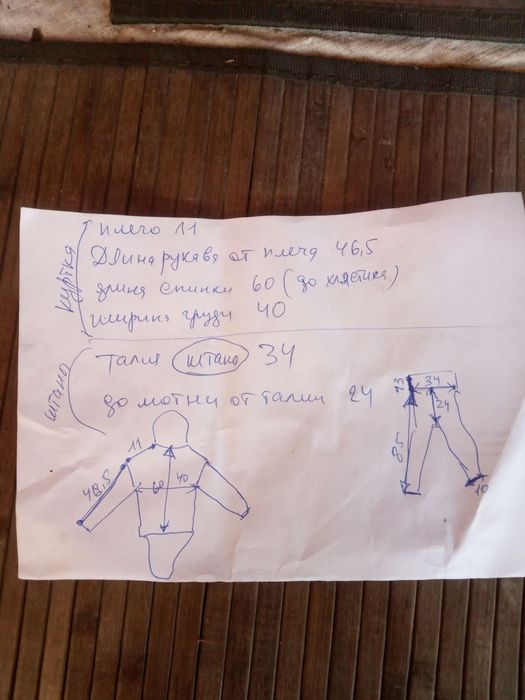 куртка
плечо 11
Длина рукава от плеча 46,5
длина спинки 60 (до хлястика)
ширина груди 40
штаны
талия штаны 34
до мотни от талии 24
11
48,5
60
40
13
34
24
85
10